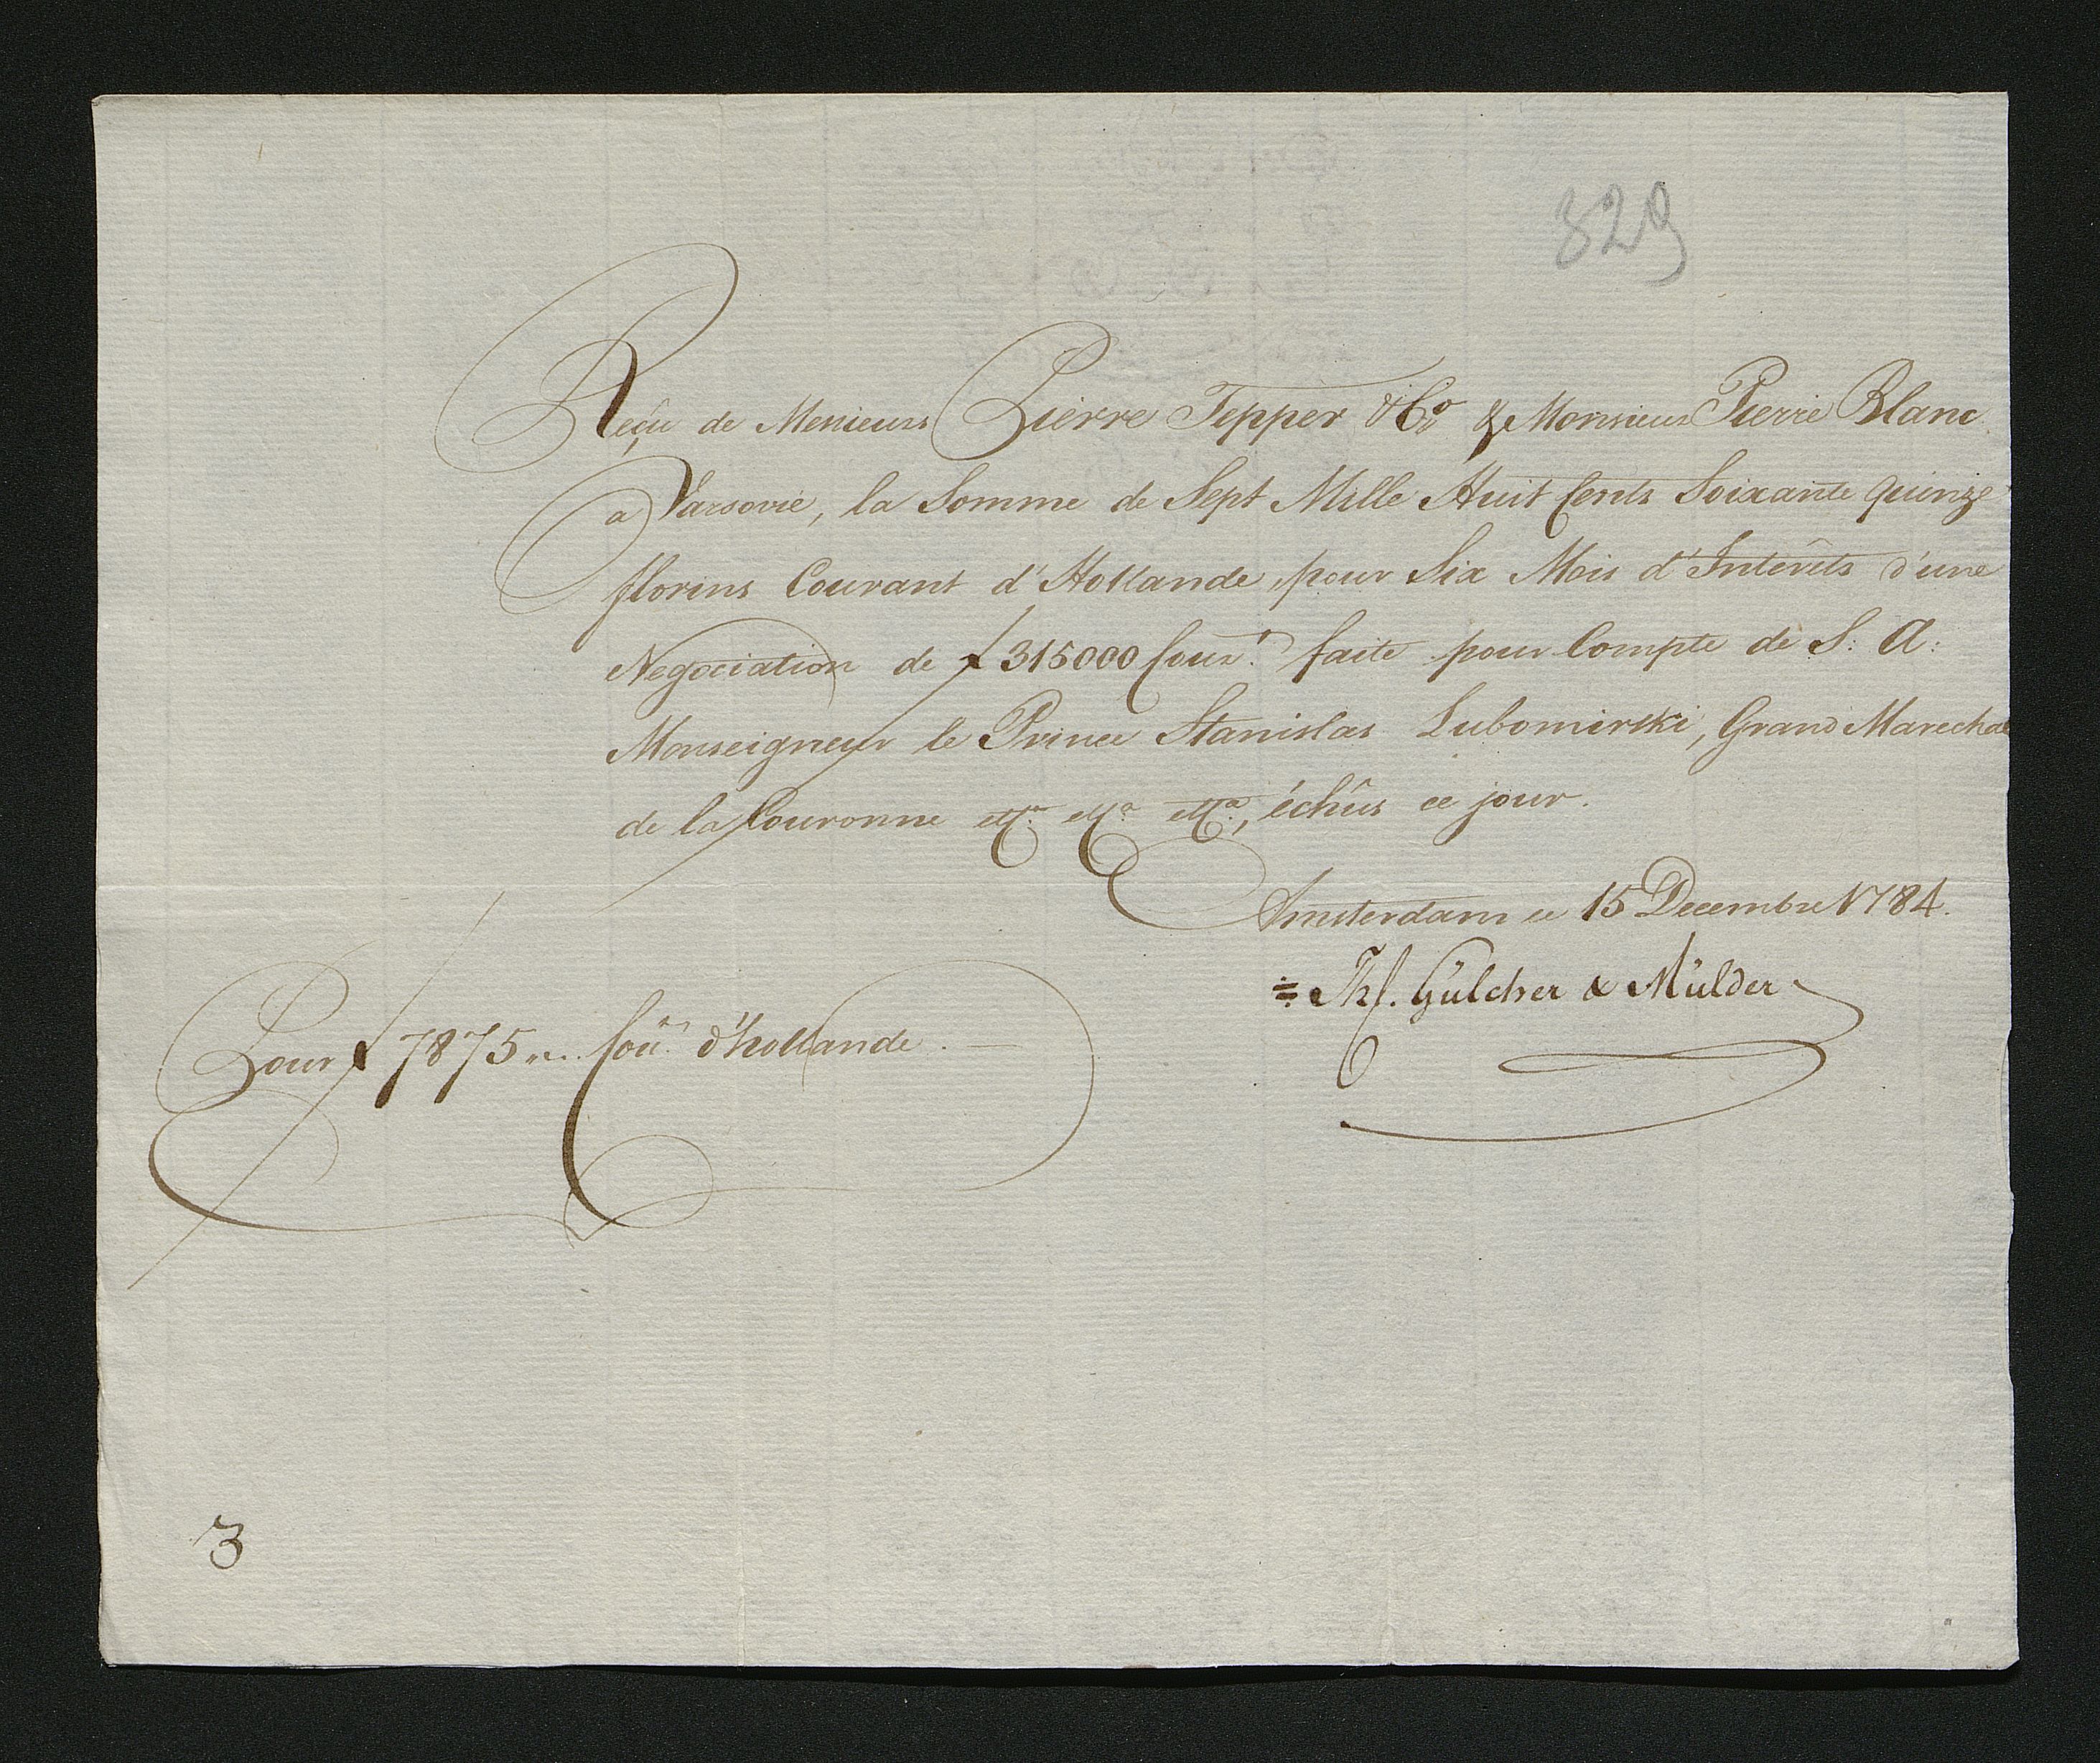 829
Reçu de Messieurs Pierre Tepper & Co & Monsieur Pierre Blanc
a Varsovie, la Somme de Sept Mille Huit Cents Soixante quinze
florins Courant d'Hollande, pour Six Mois d'Intérêts d'une
Negociation de f 315000 Cour.t faite pour Compte de S: A:
Monseigneur le Prince Stanislas Lubomirski, Grand Marechal
de la Couronne etc.a etc.a etc.a, échûs ce jour.
Amsterdam ce 15 Decembre 1784.
Th. Gülcher & Mülder
Pour f 7875 „ „. Coûr.t d'hollande. —
3